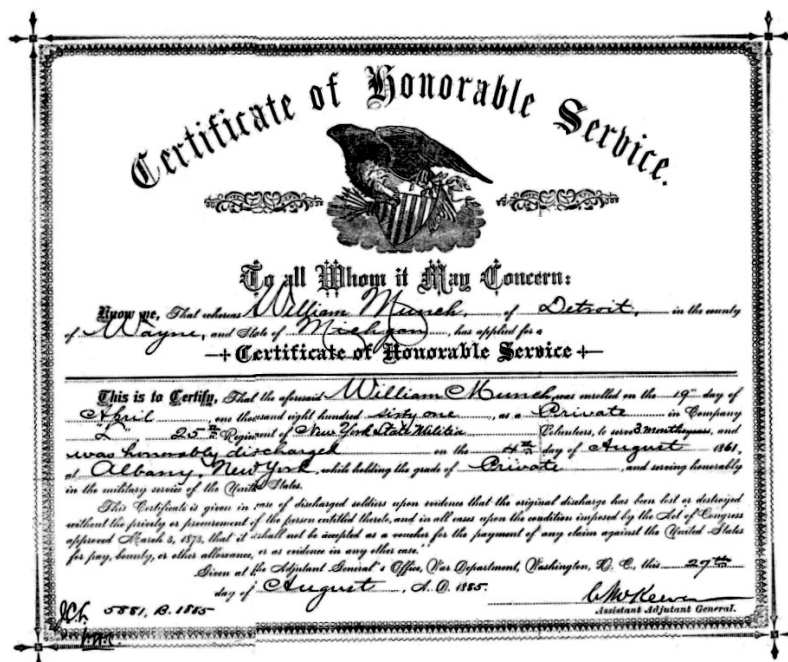 Certificate of Honorable Service.
To all Whom it May Concern:
Know me, That whereas William Munch, of Detroit, in the county
of Wayne, and State of Michigan, has applied for a
Certificate of Honorable Service
This is to Certify, That the aforesaid William Munch, was enrolled on the 19th day of
April, one thousand eight hundred sixty one, as a Private in Company
25th Regiment of New York State Militia Volunteers, to serve 3 months years, and
was honorably discharged on the 4th day of August 1861,
at Albany, New York, while holding the grade of Private, and serving honorably
in the military service of the United States.
This Certificate is given in case of discharged soldiers upon evidence that the original discharge has been lost or destroyed
without the privity or procurement of the person entitled thereto, and in all cases upon the condition imposed by the Act of Congress
approved March 3, 1873, that it shall not be accepted as a voucher for the payment of any claim against the United States
for pay, bounty, or other allowance, or as evidence in any other case.
Given at the Adjutant General's Office, War Department, Washington, D. C., this 27th
day of August, A. D. 1885.
C McKeever
Assistant Adjutant General.
5881, B. 1885